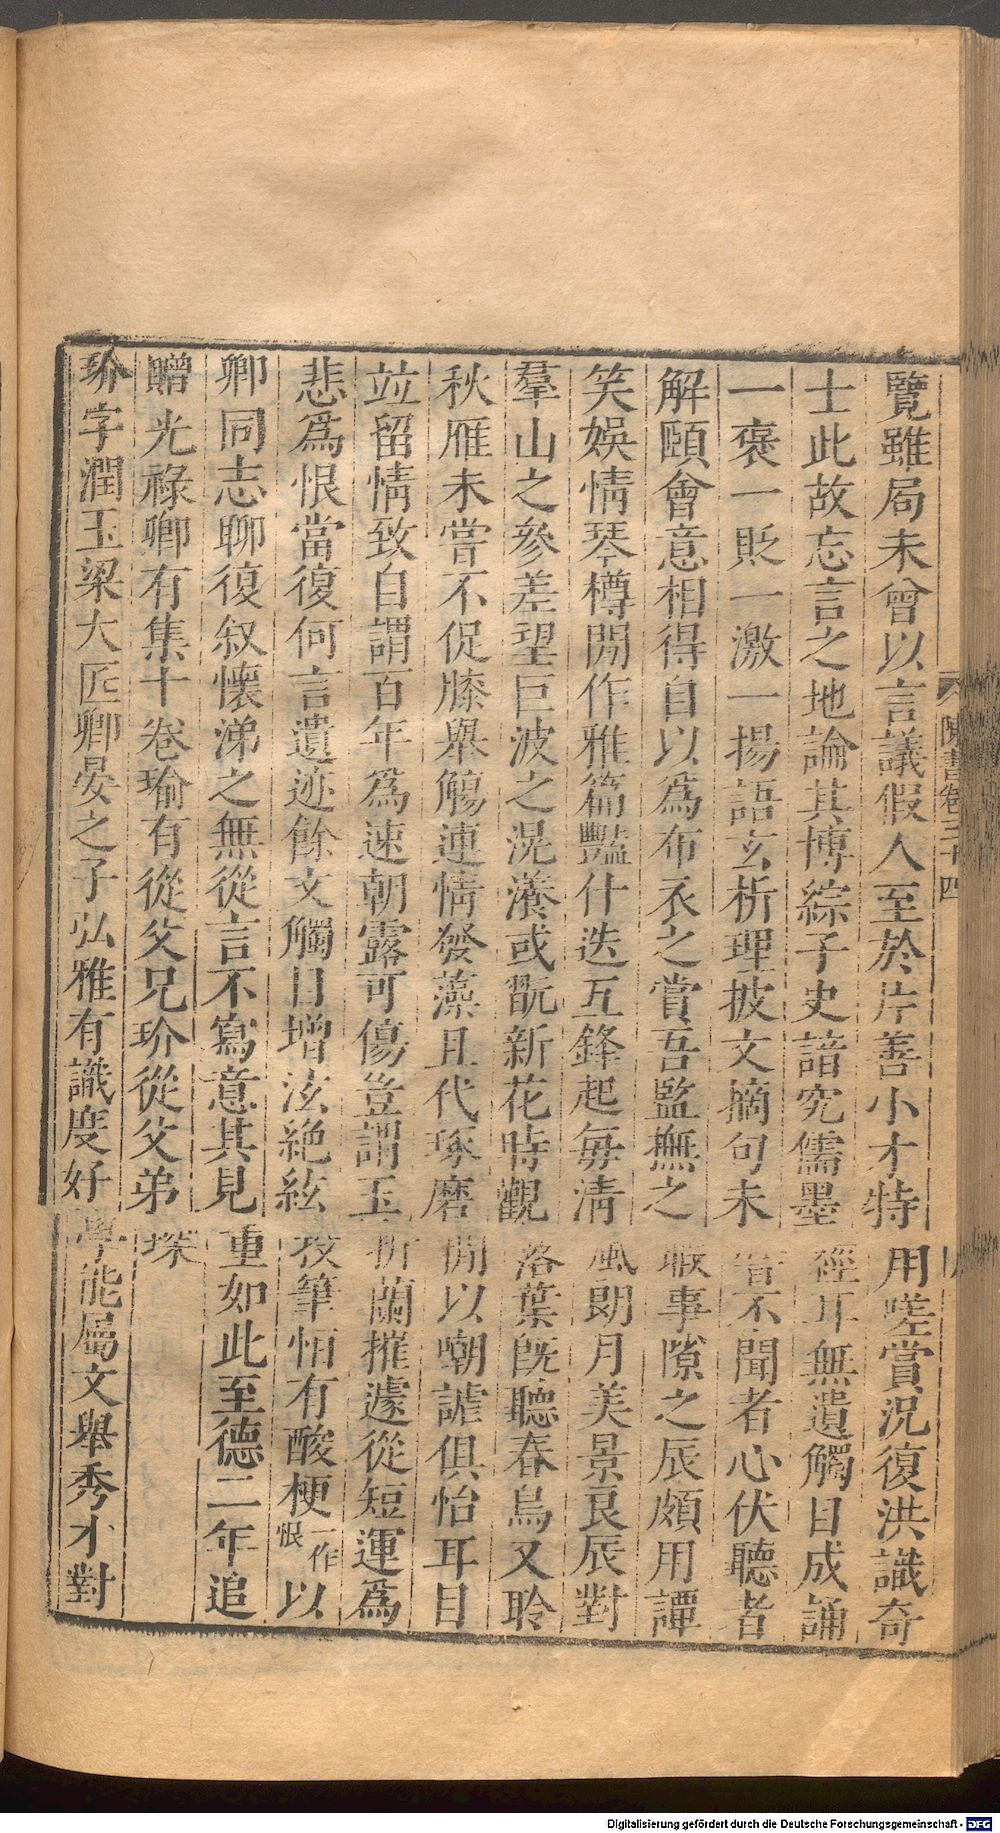 覽雖局未曾以言議假人至於片善小才特用嗟賞況復洪識奇
士此故忘言之地論其博綜子史諳究儒墨經耳無遺觸目成誦
一褒一貶一激一揚語玄析理披文摘句未嘗不聞者心伏聽者
解頤會意相得自以爲布衣之賞吾監撫之暇事隙之辰頗用譚
笑娛情琴樽閒作雅篇豔什迭互鋒起每清風朗月美景良辰對
羣山之參差望巨波之滉瀁或翫新花時觀落葉旣聽春鳥又聆
秋雁未嘗不促膝舉觴連情發藻且代琢磨閒以嘲謔俱怡耳目
竝留情致自謂百年爲速朝露可傷豈謂玉折蘭摧遽從短運爲
悲爲恨當復何言遺迹餘文觸目增泫絶絃投筆恒有酸梗一作恨以
卿同志聊復叙懷涕之無從言不寫意其見重如此至德二年追
贈光祿卿有集十卷瑜有從父兄玠從父弟琛
玠字潤玉梁大匠卿晏之子弘雅有識度好學能屬文舉秀才對
陳書卷三十四
Digitalisierung gefördert durch die Deutsche Forschungsgemeinschaft - DFG